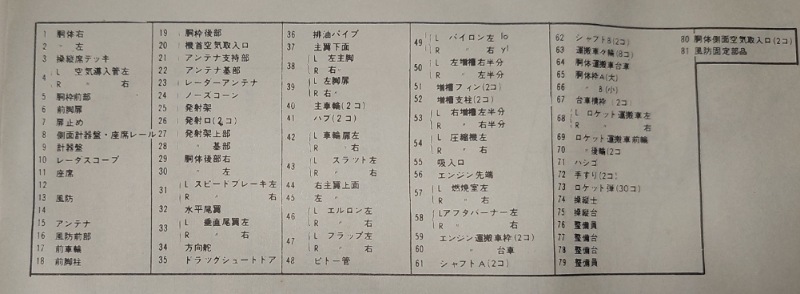 1 胴体右
2 〃 左
3 操縦席デッキ
4 L 空気導入管左
R 〃 右
5 胴枠前部
6 前脚扉
7 扉止め
8 側面計器盤・座席レール
9 計器盤
10 レーダスコープ
11 座席
12
13 風防
14
15 アンテナ
16 風防前部
17 前車輪
18 前脚柱
19 胴枠後部
20 機首空気取入口
21 アンテナ支持部
22 アンテナ基部
23 レーダーアンテナ
24 ノーズコーン
25 発射架
26 発射口(2コ)
27 発射架上部
28 〃 基部
29 胴体後部右
30 〃 左
31 L スピードブレーキ左
R 〃 右
32 水平尾翼
33 L 垂直尾翼左
R 〃 右
34 方向舵
35 ドラッグシュートトア
36 排油パイプ
37 主翼下面
38 L 左主脚
R 右 〃
39 L 左脚扉
R 右 〃
40 主車輪(2コ)
41 ハブ(2コ)
42 L 車輪扉左
R 〃 右
43 L スラット左
R 〃 右
44 右主翼上面
45 左 〃
46 L エルロン左
R 〃 右
47 L フラップ左
R 〃 右
48 ピトー管
49 L パイロン左 lo
R 〃 右 yl
50 L 左増槽右半分
R 〃 左半分
51 増槽フィン(2コ)
52 増槽支柱(2コ)
53 L 右増槽左半分
R 〃 右半分
54 L 圧縮機左
R 〃 右
55 吸入口
56 エンジン先端
57 L 燃焼室左
R 〃 右
58 Lアフタバーナー左
R 〃 右
59 エンジン運搬車枠(2コ)
60 〃 台車
61 シャフトA(2コ)
62 シャフトB(2コ)
63 運搬車々輪(8コ)
64 胴体運搬車台車
65 胴体枠A(大)
66 〃 B(小)
67 台車横枠(2コ)
68 L ロケット運搬車左
R 〃 右
69 ロケット運搬車前輪
70 〃 後輪(2コ
71 ハシゴ
72 手すり(2コ)
73 ロケット弾(30コ)
74 操縦士
75 操縦台
76 整備員
77 整備台
78 整備台
79 整備員
80 胴体側面空気取入口(2コ)
81 風防固定部品